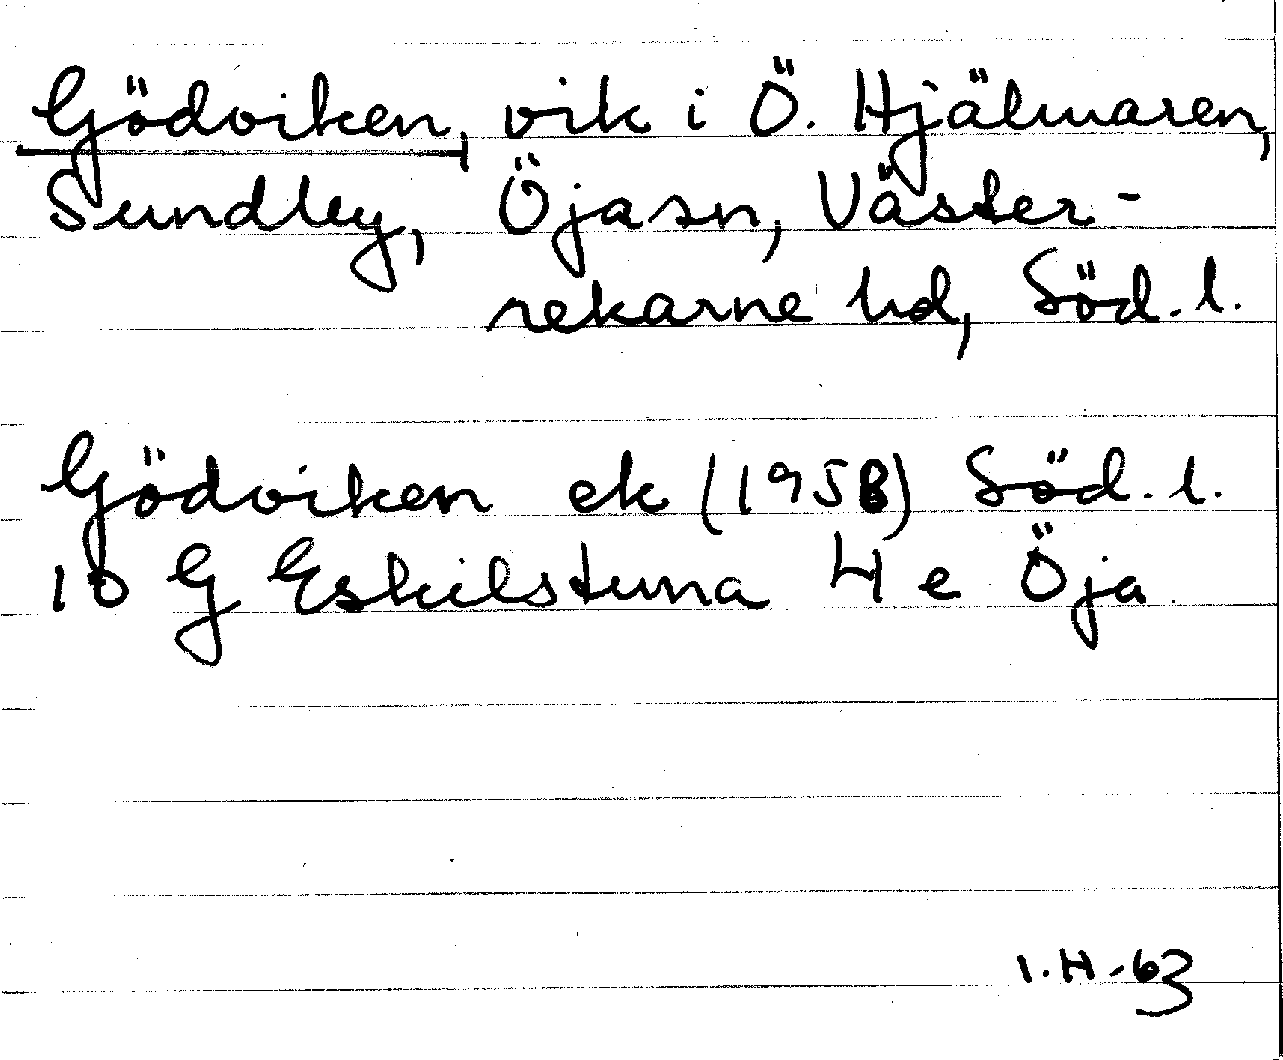 Gödviken, vik i Ö. Hjälmaren,
Sundby, Öja sn, Väster-
rekarne hd, Söd. l.
Gödviken ek (1958) Söd. l.
10 G Eskilstuna 4 e Öja
I.H.-63